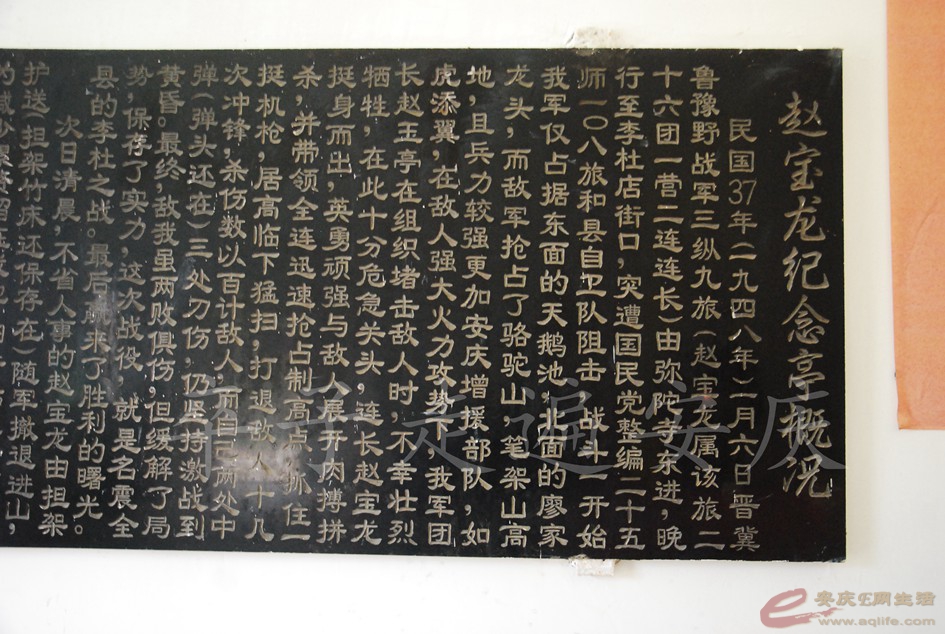 赵宝龙纪念亭概况
民国37年(一九四八年)一月六日晋冀
鲁豫野战军三纵九旅(赵宝龙属该旅二
十六团一营二连连长)由弥陀寺东进,晚
行至李杜店街口,突遭国民党整编二十五
师一〇八旅和县自卫队阻击,战斗一开始
我军仅占据东面的天鹅池,北面的廖家
龙头,而敌军抢占了骆驼山,笔架山高
地,且兵力较强更加安庆增援部队,如
虎添翼,在敌人强大火力攻势下,我军团
长赵玉亭在组织堵击敌人时,不幸壮烈
牺牲,在此十分危急关头,连长赵宝龙
挺身而出,英勇顽强与敌人展开肉搏拼
杀,并带领全连迅速抢占制高点,抓住一
挺机枪,居高临下猛扫,打退敌人十九
次冲锋,杀伤数以百计敌人,而自己两处中
弹(弹头还在)三处刀伤,仍坚持激战到
黄昏。最终,敌我虽两败俱伤,但缓解了局
势,保存了实力,这次战役,就是名震全
县的李杜之战。最后赢来了胜利的曙光。
次日清晨,不省人事的赵宝龙由担架
护送(担架竹床还保存在)随军撤退进山,
平子走遍安庆
安庆E网生活
www.aqlife.com